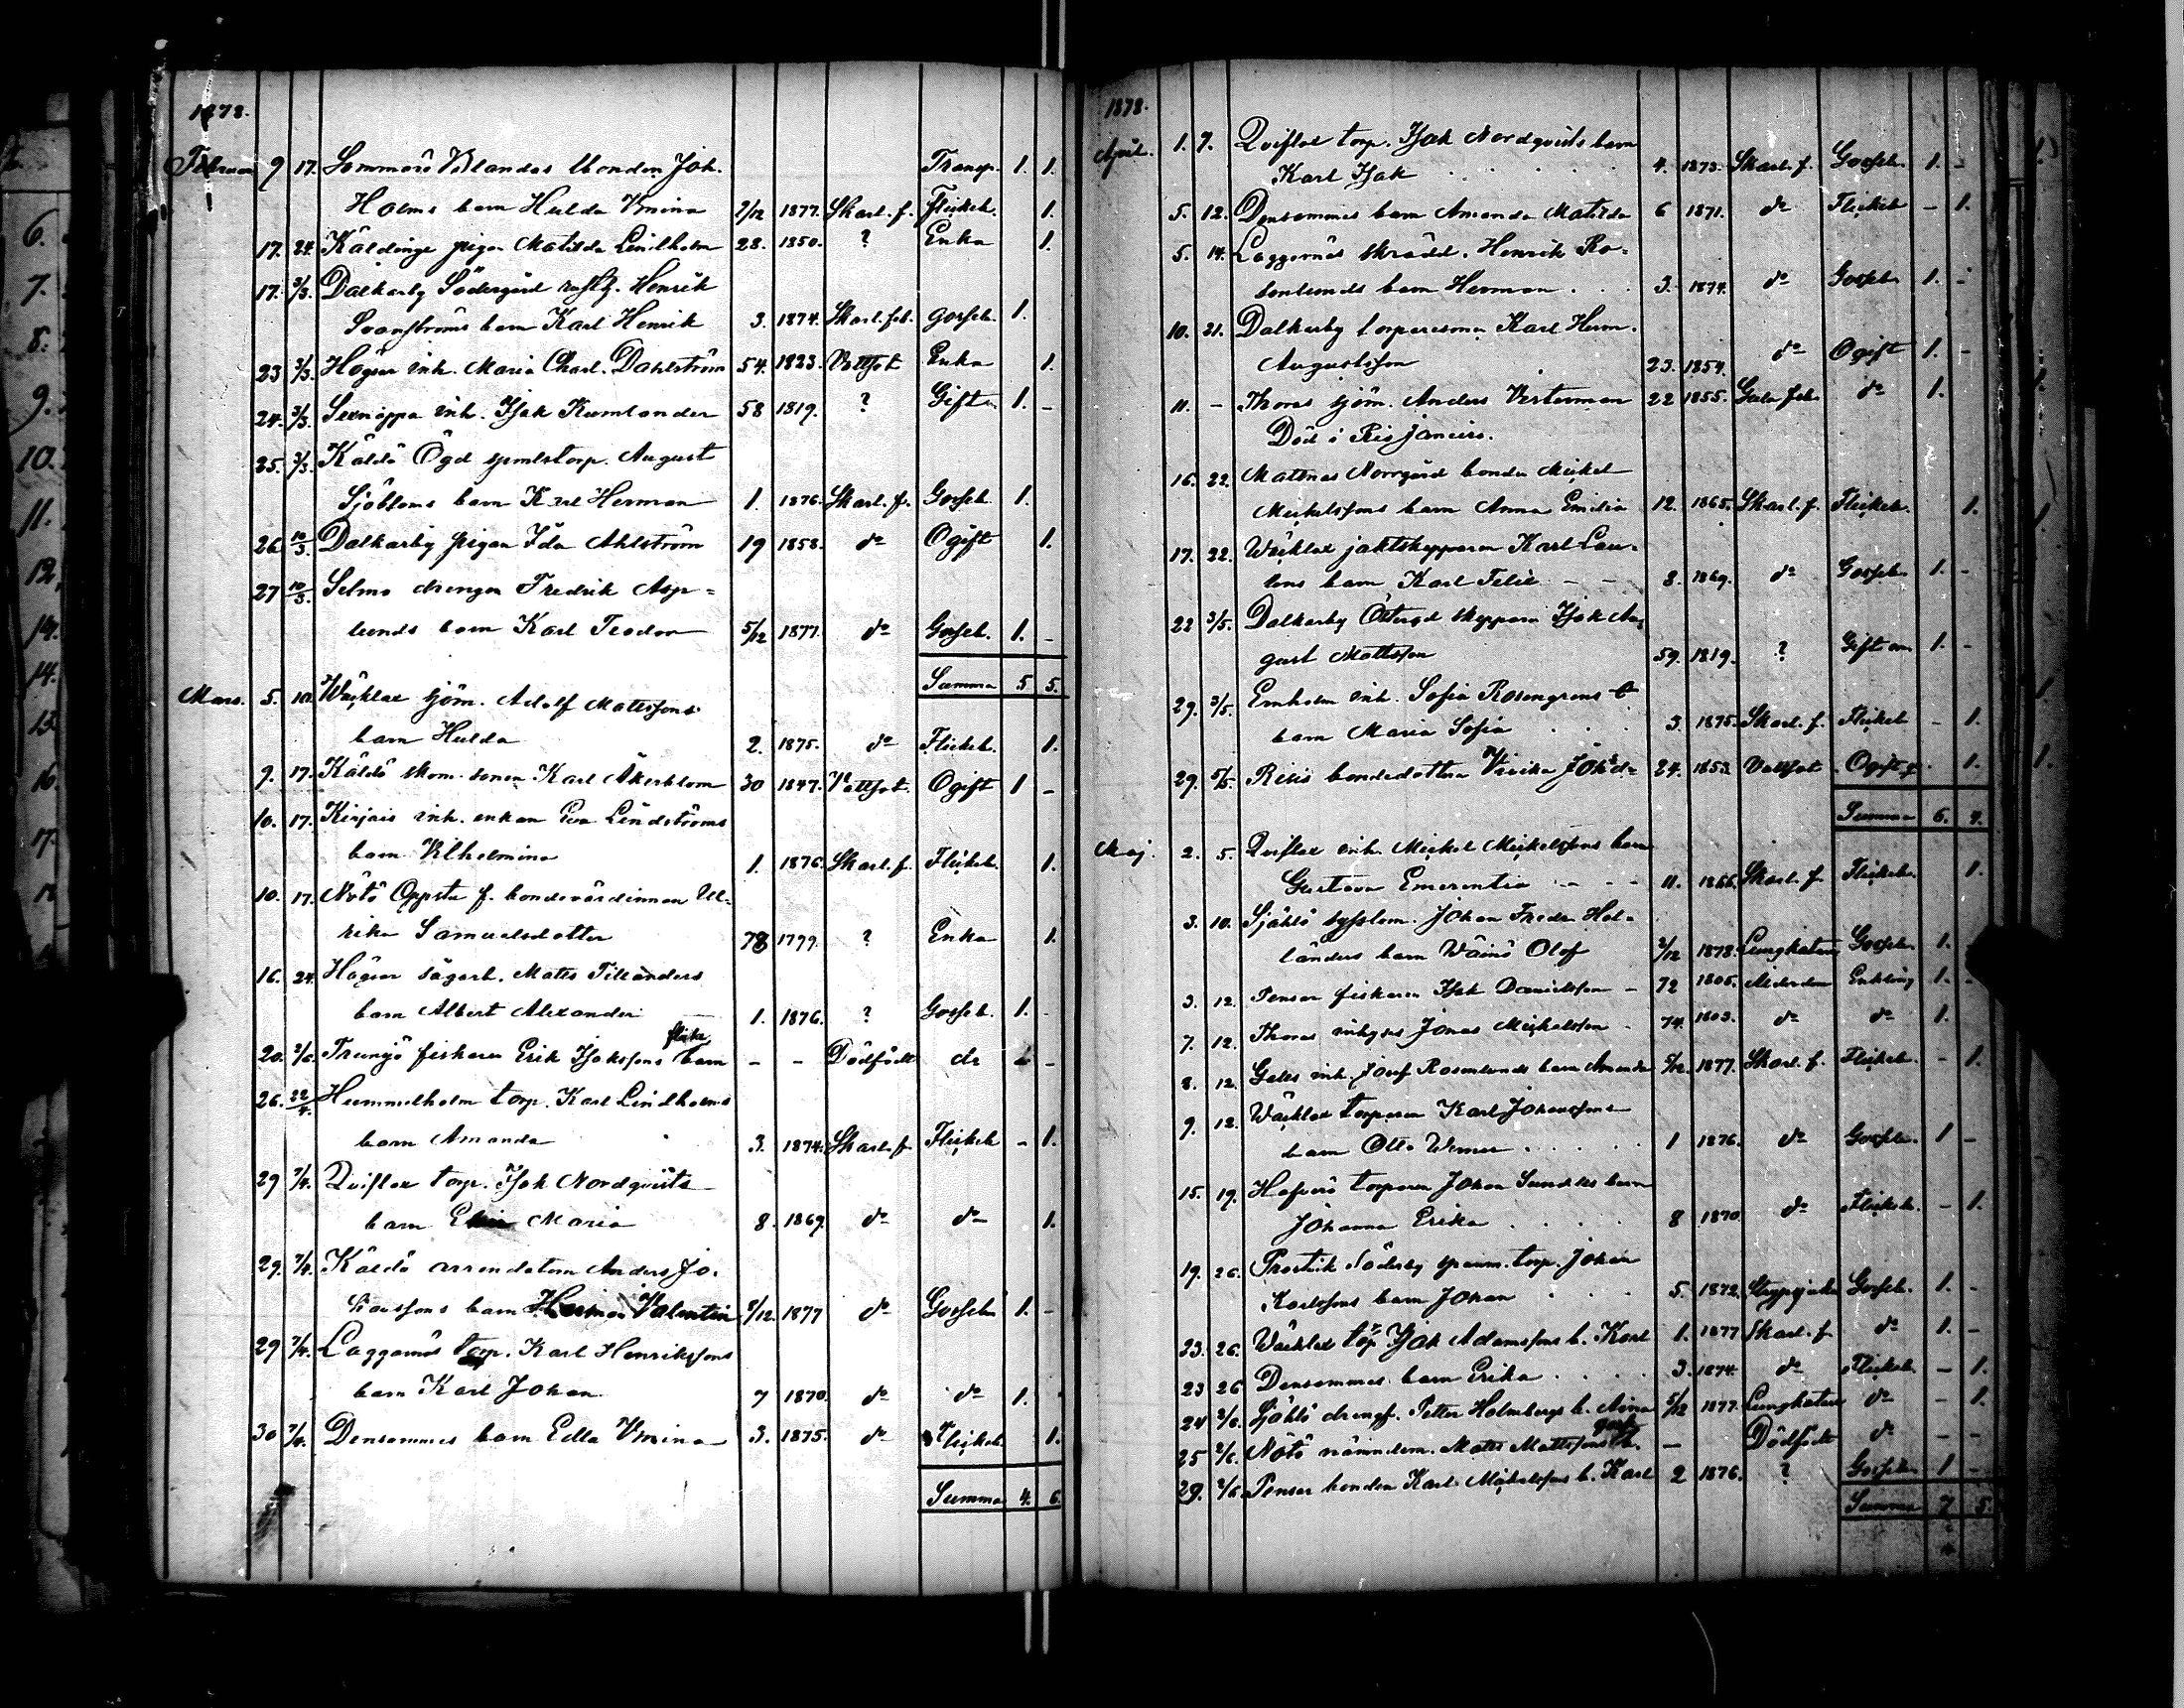 1878.
Februari 9 17. Sommarö Vestlandas bonden Joh. Transp. 1. 1.
Holms barn Hulda Vmina 2/12 1877. Skarl. f. Flickeb. 1.
17. 24. Käldinge pigan Matilda Lindholm 28. 1850. ? Enka 1.
17. 3/3. Dalkarby Södergård Henrik
Svanströms barn Karl Henrik 3. 1874. Skarl. feb. gosseb. 1.
23 3/3. Högsar inh. Maria Charl. Dahlström 54. 1823. Vattsot Enka 1.
24. 3/3. Sexnappa inh. Isak Kumlander 58 1819. ? Gift 1. -
25. 3/3. Käldö Ögd spmlstorp. August
Sjöbloms barn Karl Herman 1. 1876. Skarl. f. Gosseb. 1.
26 10/3. Dalkarby pigan Ida Ahlström 19 1858. do Ogift 1.
27 10/3. Selmo drengen Fredrik Asp=
lunds barn Karl Teodor 5/12 1877. do Gosseb. 1. -
Summa 5 5.
Mars. 5. 10. Wäcklax sjöm. Adolf Mattssons
barn Hulda 2. 1875. do Flickeb. 1.
9. 17. Käldö skom. sonen Karl Åkerblom 30 1847. Vattsot. Ogift 1 -
10. 17. Kirjais inh. enkan Eva Lindströms
barn Vilhelmina 1. 1876. Skarl. f. Flickeb. 1.
10. 17. Nötö Oppsta f. bondevärdinnan Ul=
rika Samuelsdotter 78 1799. ? Enka 1.
16. 24. Högsar sågarb. Mats Tillanders
barn Albert Alexander 1. 1876. ? Gosseb. 1. -
flicke
20. 2/6. Trunsö fiskaren Erik Isakssons barn - - Dödfödt do -
26. 22/4. Hummelholm torp. Karl Lindholms
barn Amanda 3. 1874. Skarl. f. Flickeb - 1.
29 7/4. Qviflax torp. Isak Nordqvists
barn Maria 8. 1869. do do 1.
29. 7/4. Käldö arrendatorn Anders Jo=
hanssons barn Herman Valentin 8/12. 1877 do Gosseb. 1. -
29 7/4. Laggarnäs torp. Karl Henrikssons
barn Karl Johan 7 1870. do do 1.
30 7/4. Densammes barn Edla Vmina 3. 1875. do Flickeb. 1.
Summa 4. 6.
1878.
April. 1. 7. Qviflax torp. Isak Nordqvists barn
Karl Isak 4. 1873. Skarl. f. Gosseb. 1. -
5. 12. Densammes barn Amanda Matilda 6 1871. do Flickeb - 1.
5. 14. Laggarnäs skrädd. Henrik Ro=
senlunds barn Herman 3. 1874. do Gosseb. 1. -
10. 21. Dalkarby torparesonen Karl Herm.
Augustsson 23. 1854. do Ogift 1. -
11. - Thoras sjöm. Anders Vesterman 22 1855. Gula feb. do 1.
Död i Rio Janeiro.
16. 22. Mattnäs Norrgård bonden Mickel
Mickelssons barn Anna Emilia 12. 1865. Skarl. f. Flickeb. 1.
17. 22. Wäcklax jaktskepparen Karl Lau=
rens barn Karl Felix - - 8. 1869. do Gosseb. 1. -
22 3/5. Dalkarby Östergd skeppare Isak Au=
gust Mattsson 59. 1819. ? Gift m. 1. -
29. 3/5. Ernholm inh. Sofia Rosengrens
barn Maria Sofia 3. 1875. Skarl. f. Flickeb - 1.
29. 5/5. Risis bondedottern Vivika Johsdr 24. 1853. Vattsot Ogift q. 1.
Summa 6. 4.
Maj. 2. 5. Qviflax inh. Mickel Mickelssons barn
Gustava Emerentia - - - 11. 1866. Skarl. f. Flickeb. 1.
3. 10. Sjählö sysslom. Johan Fredr Hol=
länders barn Wäinö Olof 2/12 1878. Lungkatarr Gosseb. 1. -
3. 12. Pensar fiskaren Isak Danielsson - 72 1805. Ålderdom Enkling 1. -
7. 12. Thoras inhyses Jonas Mickelsson - 74. 1803. do do 1.
8. 12. Galts inh. Josef Rosenlunds barn Amanda 5/12. 1877. Skarl. f. Flickeb. - 1.
9. 12. Wäcklax torparen Karl Johanssons
barn Otto Verner 1 1876. do Gosseb. 1 -
15. 19. Hafverö torparen Johan Sundells barn
Johanna Erika 8 1870 do Flickeb. - 1.
19. 26. Prostvik Söderby spanm. torp. Johan
Karlssons barn Johan 5. 1872. Strypsjuka Gosseb. 1. -
23. 26. Wäcklax torp Isak Adamssons b. Karl 1. 1877 Skarl. f. do 1. -
23 26 Densammes barn Erika 3. 1874. do Flickeb. - 1.
24 2/6. Sjählö drengs. Petter Holmbergs b. Aina 5/12 1877. Lungkatarr do - 1.
goss
25 2/6. Nötö nämndem. Mats Mattssons b. - Dödfödt do - -
29. 2/6. Pensar bonden Karl Mickelssons b. Karl 2 1876. ? Gosseb. 1 -
Summa 7 5.